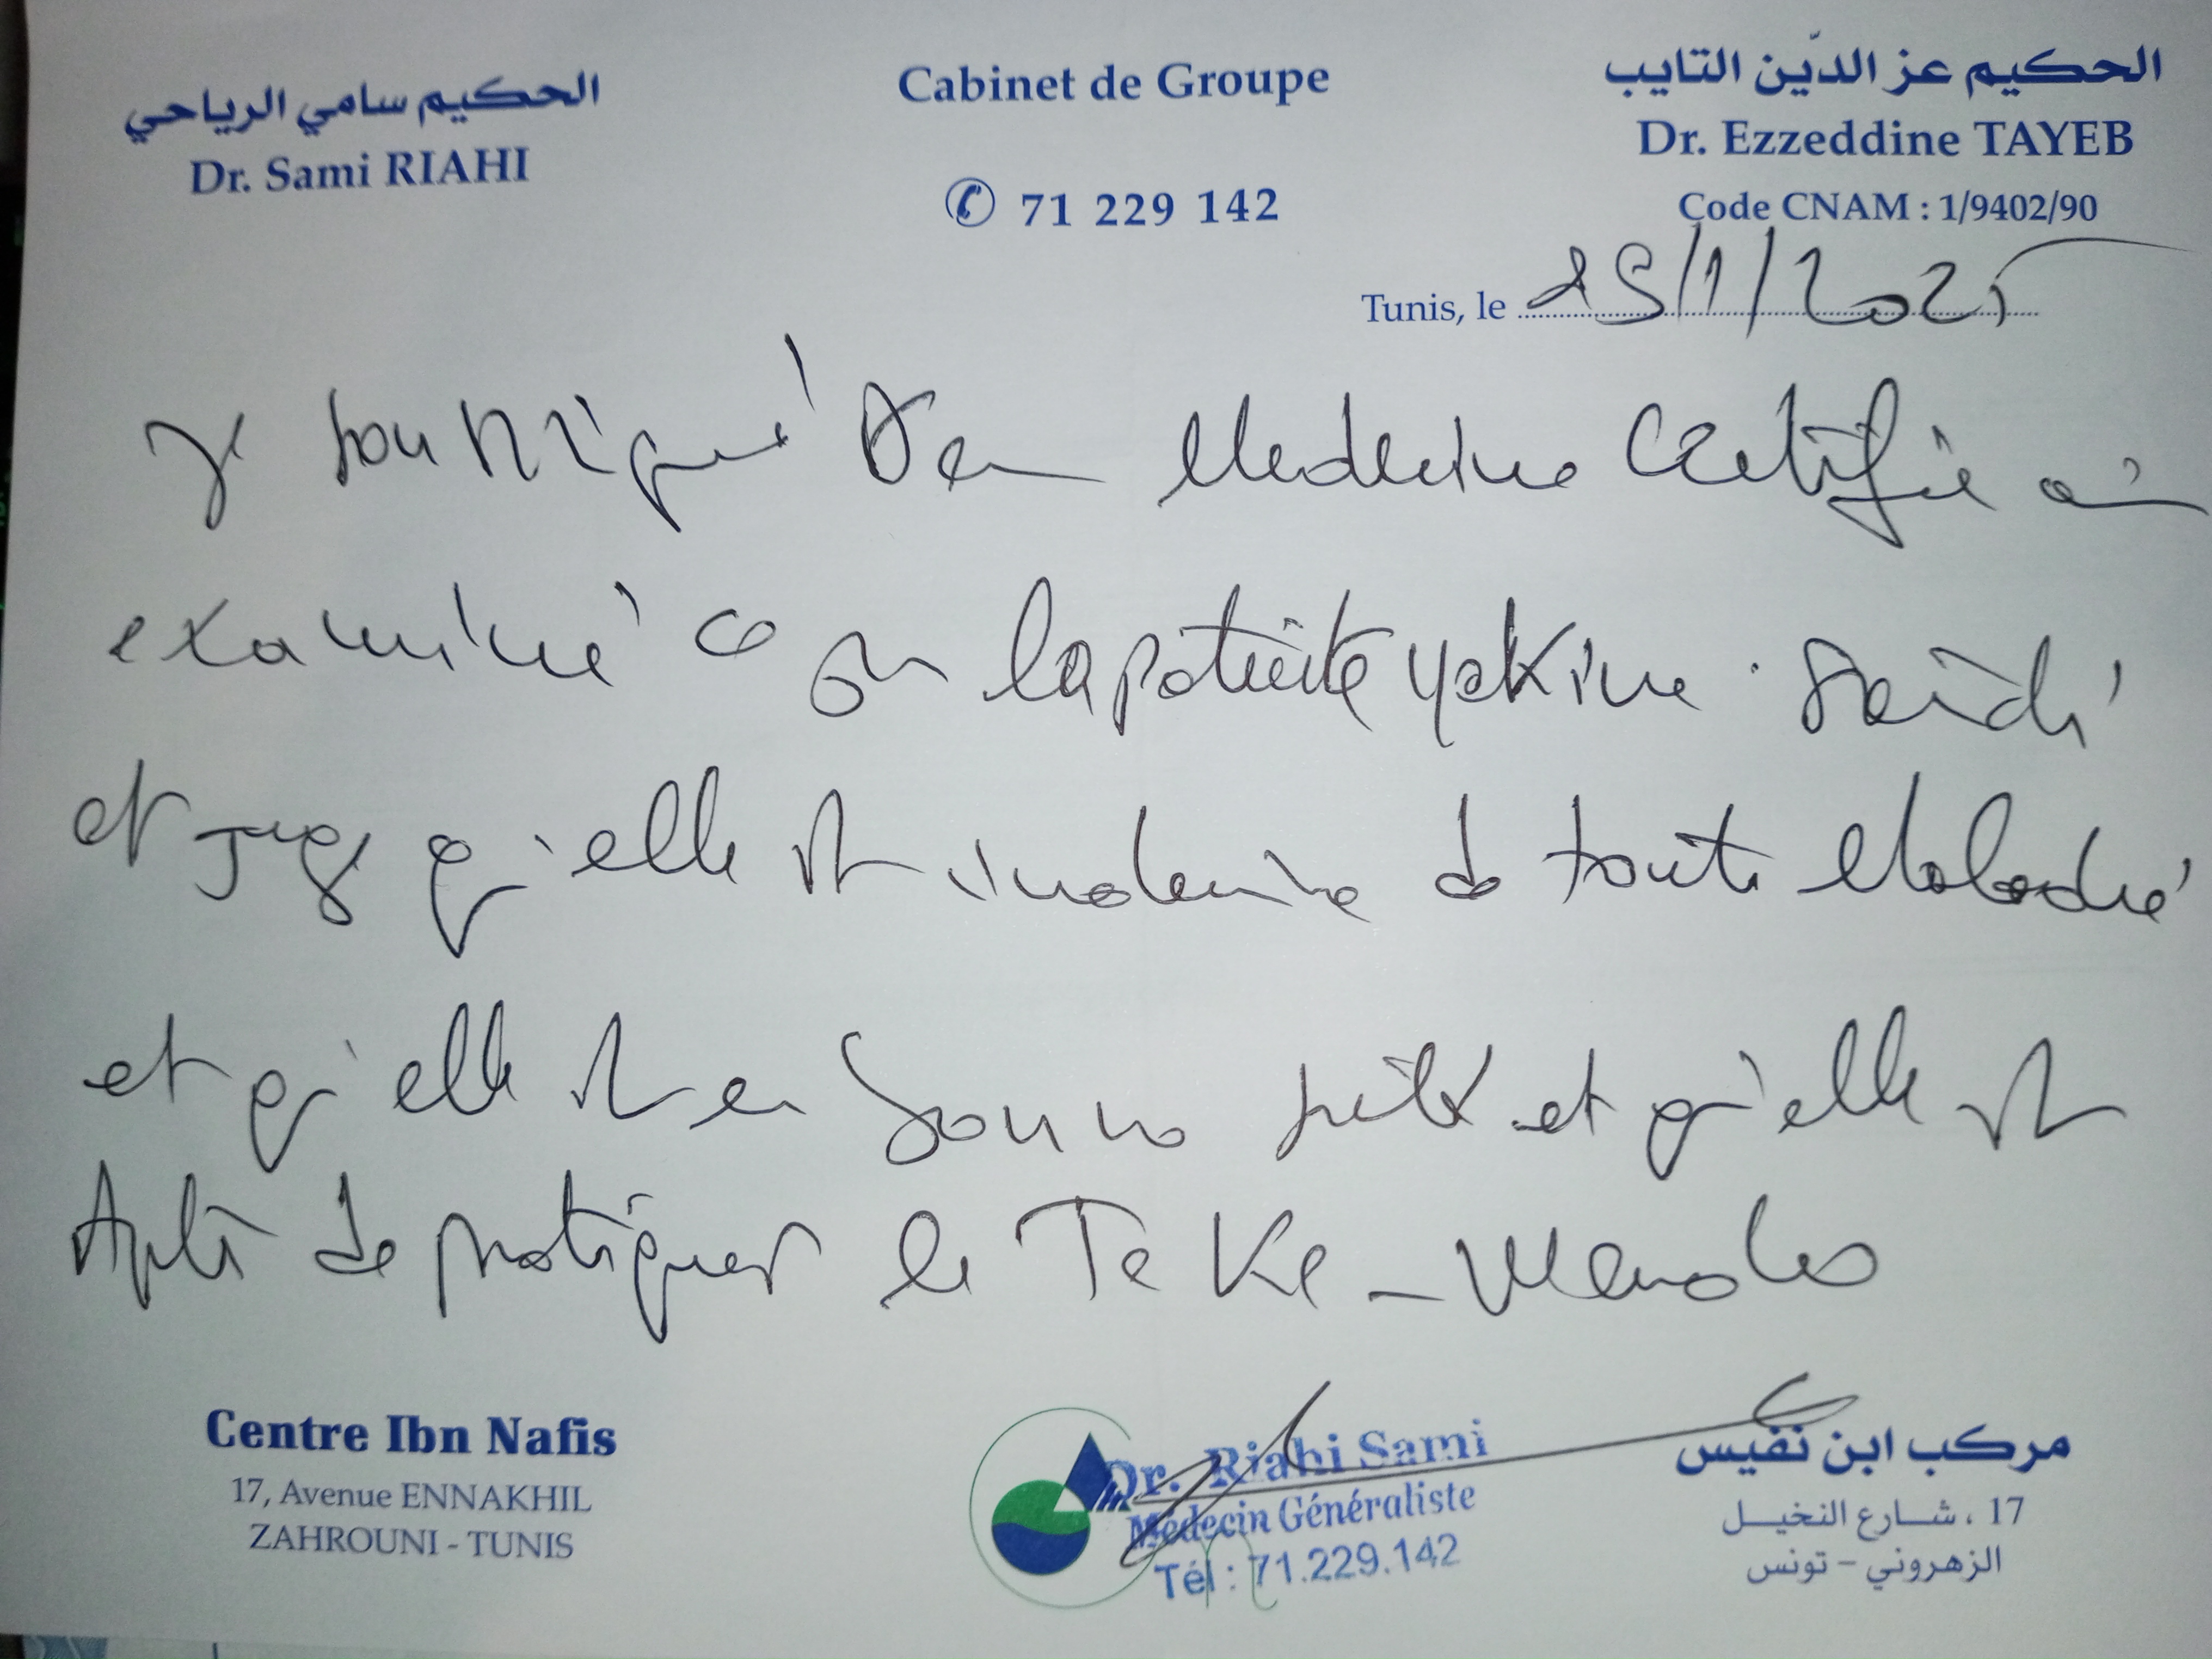 الحكيم سامي الرياحي
Dr. Sami RIAHI
Cabinet de Groupe
✆ 71 229 142
الحكيم عز الدّين التايب
Dr. Ezzeddine TAYEB
Code CNAM : 1/9402/90
Tunis, le 25/1/2025
Je soussigné Dr en Medecine Certifie avoir
examiné ce jour la patiente yakine Saidi
et juge qu'elle est indemne de toute Maladie
et qu'elle est en bonne santé et qu'elle est
Apte de pratiquer le Te Ke - Wendo
Centre Ibn Nafis
17, Avenue ENNAKHIL
ZAHROUNI - TUNIS
Dr. Riahi Sami
Médecin Généraliste
Tél : 71.229.142
مركب ابن نفيس
17 ، شارع النخيل
الزهروني - تونس